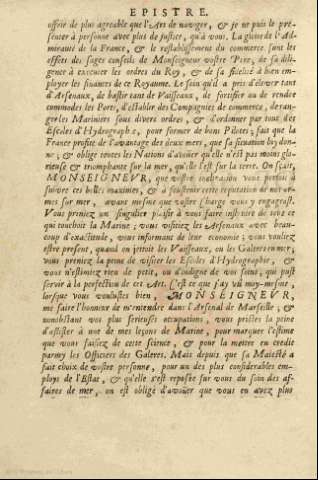 EPISTRE.
offrir de plus agreable que l'Art de naviger, & je ne puis le pre-
senter à personne avec plus de justice, qu'à vous. La gloire de l'Ad-
mirauté de la France, & le restablissement du commerce, sont les
effets des sages conseils de Monseigneur vostre Pere, de sa dili-
gence à executer les ordres du Roy, & de sa fidelité à bien em-
ployer les finances de ce Royaume. Le soin qu'il a pris d'élever tant
d'Arsenaux, de bastir tant de Vaisseaux, de fortifier ou de rendre
commodes les Ports, d'establir des Compagnies de commerce, de ran-
ger les Mariniers sous divers ordres, & d'ordonner par tout des
Escoles d'Hydrographie, pour former de bons Pilotes, fait que la
France profite de l'avantage des deux mers, que sa situation luy don-
ne, & oblige toutes les Nations d'avoüer qu'elle n'est pas moins glo-
rieuse & triomphante sur la mer, qu'elle l'est sur la terre. On sçait,
MONSEIGNEUR, que vostre inclination vous portoit à
suivre ces belles maximes, & à soustenir cette reputation de nos ar-
mes sur mer, avant mesme que vostre charge vous y engageast.
Vous preniez un singulier plaisir à vous faire instruire de tout ce
qui touchoit la Marine; vous visitiez les Arsenaux avec beau-
coup d'exactitude, vous informant de leur economie; vous vouliez
estre present, quand on jettoit les Vaisseaux, ou les Galeres en mer;
vous preniez la peine de visiter les Escoles d'Hydrographie, &
vous n'estimiez rien de petit, ou d'indigne de vos soins, qui pust
servir à la perfection de cet Art. C'est ce que j'ay vû moy-mesme,
lorsque vous voulustes bien, MONSEIGNEUR,
me faire l'honneur de m'entendre dans l'Arsenal de Marseille, &
nonobstant vos plus serieuses occupations, vous pristes la peine
d'assister à une de mes leçons de Marine, pour marquer l'estime
que vous faisiez de cette science, & pour la mettre en credit
parmy les Officiers des Galeres. Mais depuis que sa Majesté a
fait choix de vostre personne, pour un des plus considerables em-
ploys de l'Estat, & qu'elle s'est reposée sur vous du soin des af-
faires de mer, on est obligé d'avoüer que vous en avez plus